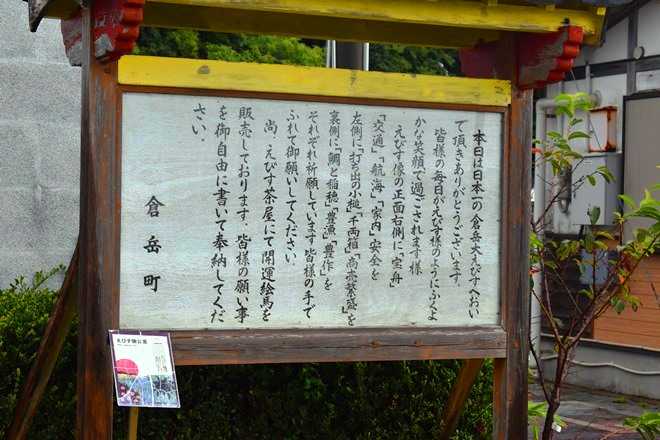 本日は日本一の倉岳大えびすへおい
て頂きありがとうございます。
皆様の毎日がえびす様のようにふくよ
かな笑顔で過ごされます様
えびす像の正面右側に「宝舟」
「交通」「航海」「家内」安全を
左側に「打ち出の小槌」「千両箱」「商売繁盛」を
裏側に「鯛と稲穂」「豊漁」「豊作」を
それぞれ祈願しています皆様の手で
ふれて御願いしてください
尚、えびす茶屋にて開運絵馬を
販売しております。皆様の願い事
を御自由に書いて奉納してくだ
さい。
倉岳町
えびす像公園